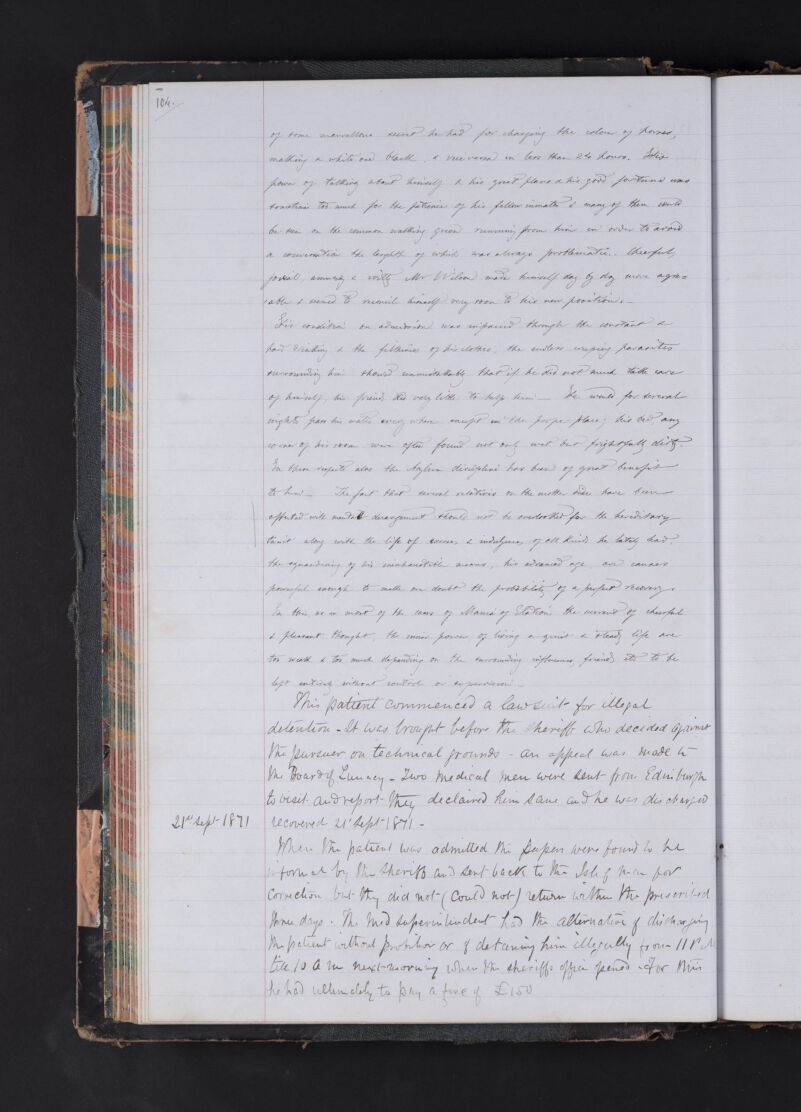 104.
of some marvellous secret he had for changing the colour of horses,
making a white one black, & vice versa in less than 24 hours. His
power of talking about himself & his great plans & his good fortune was
sometimes too much for the patience of his fellow inmates & many of them could
be seen on the common walking green running from him in order to avoid
a conversation the lenghth of which was always problematic. Cheerful,
jovial, amusing & witty Mr Wilson made himself day by day more agre=
=able & seemed to reconcile himself very soon to his new position. –
His condition on admission was impaired through the constant &
hard drinking & the filthiness of his clothes, the endless creeping parasites
surrounding him showed unmistakably that if he did not much take care
of himself, his friends did very little to help him – He would for several
nights pass his water every where except in the proper place; his bed, any
corner of his room were often found not only wet but frightfully dirty.
In these respects also the Asylum discipline has been of great benefit
to him – The fact that several relatives on the mother side have been
affected with mental derangement should not be overlooked for the hereditary
taint along with the life of excesses & indulgences of all kinds he lately had,
the squandering of his means, his advanced age, are causes
powerful enough to make one doubt the probability of a perfect recovery.
In this, as in most of the cases of Mania of Elation the current of cheerful
& pleasant thought, the minor power of living a quiet & steady life are
too weak & too much depending on the surrounding influences, friends etc to be
left entirely without control or supervision –
This patient commenced a lawsuit for illegal
detention – It was brought before the Sheriff who decided against
the pursuer on technical grounds – an appeal was made to
the Board of Lunacy – Two medical men were sent from Edinburgh
to visit and report they declaired him sane and he was discharged
21st Sept 1871 recovered 21st Sept 1871 –
When the patient was admitted the papers were found to be
informal by the Sheriff and sent back to the Isle of Man for
correction but they did not (could not) return within the prescribed
three days. The Med Superintendent had the alternative of discharging
the patient without or of detaining him illegally from 11 P.M
till 10 A m next morning when the sheriffs office opened – For this
he had ultimately to pay a fine of £150